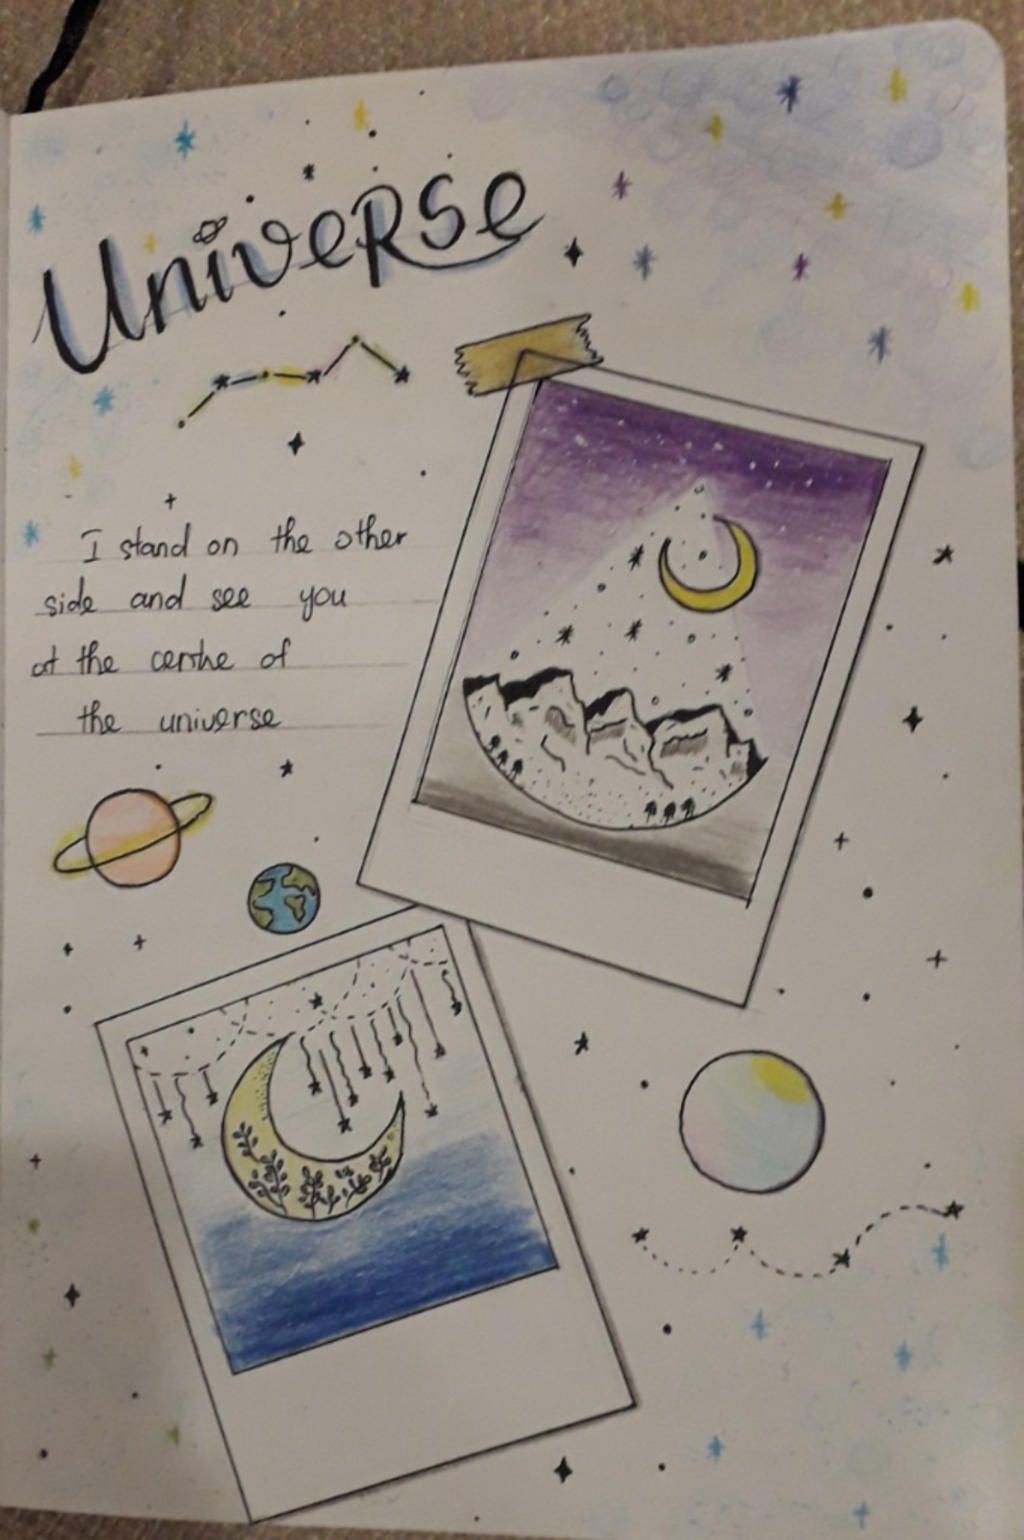 UniveRse
I stand on the other
side and see you
at the centre of
the universe